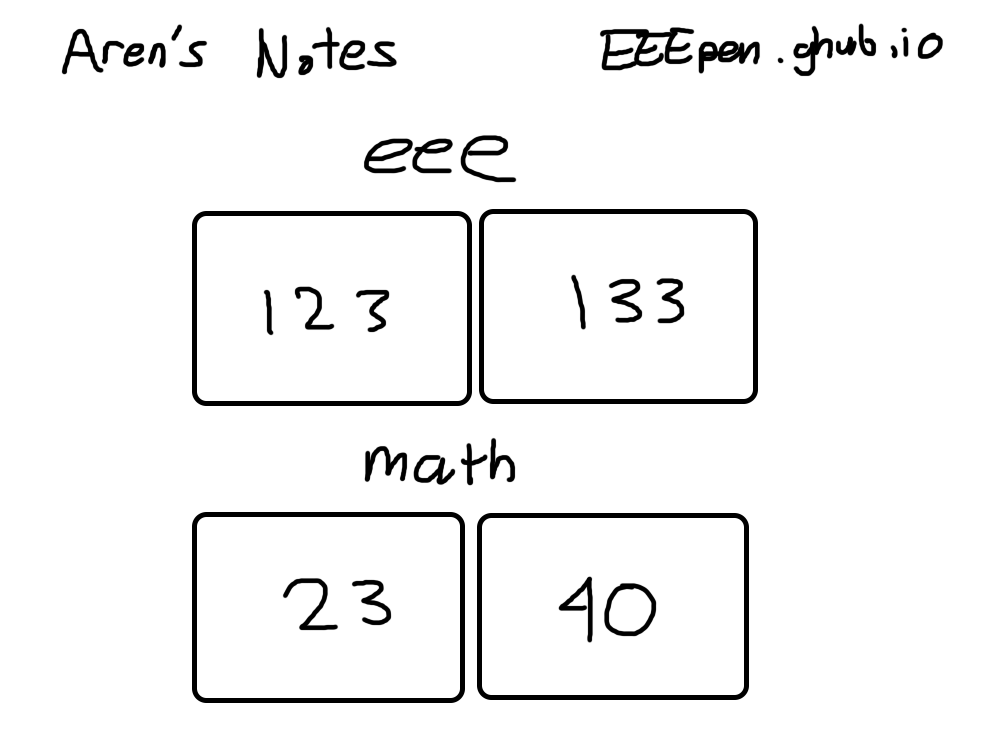 Aren's Notes EEEpen.ghub.io
eee
123 133
math
23 40